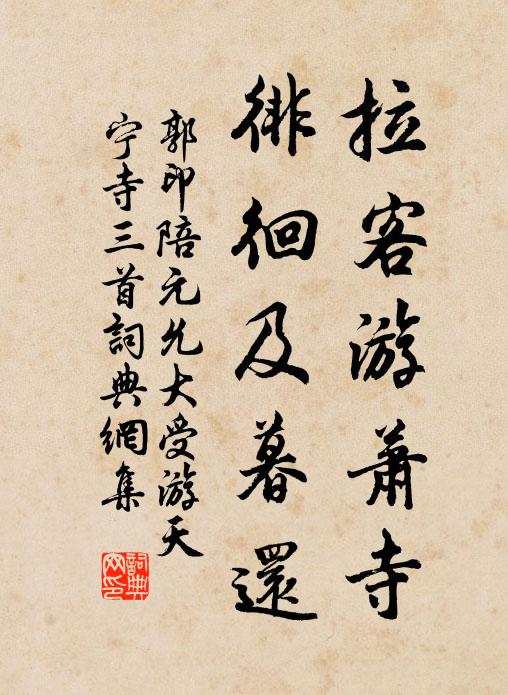 拉客游蕭寺
徘徊及暮還
郭印陪元允大受游天
宁寺三首詞典網集
詞典网印